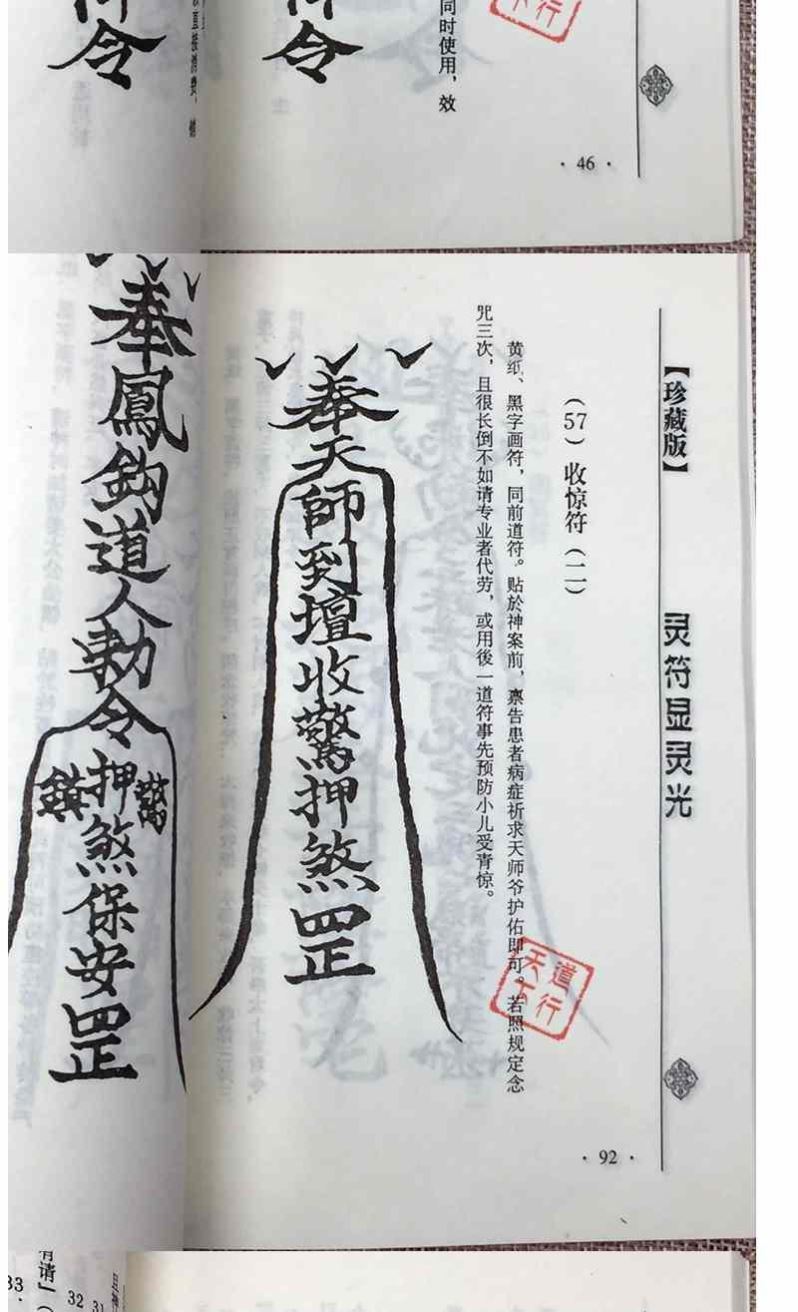 令
令
同时使用，效
· 46 ·
【珍藏版】
灵符显灵光
（57）收惊符（二）
黄纸、黑字画符，同前道符。贴於神案前，禀告患者病症祈求天师爷护佑即可。若照规定念
咒三次，且很长倒不如请专业者代劳，或用後一道符事先预防小儿受青惊。
道行
天下
奉天師到壇收驚押煞罡
奉鳳鈎道人勅令
驚
押煞保安罡
鎮
· 92 ·
有请」（
33
32
31